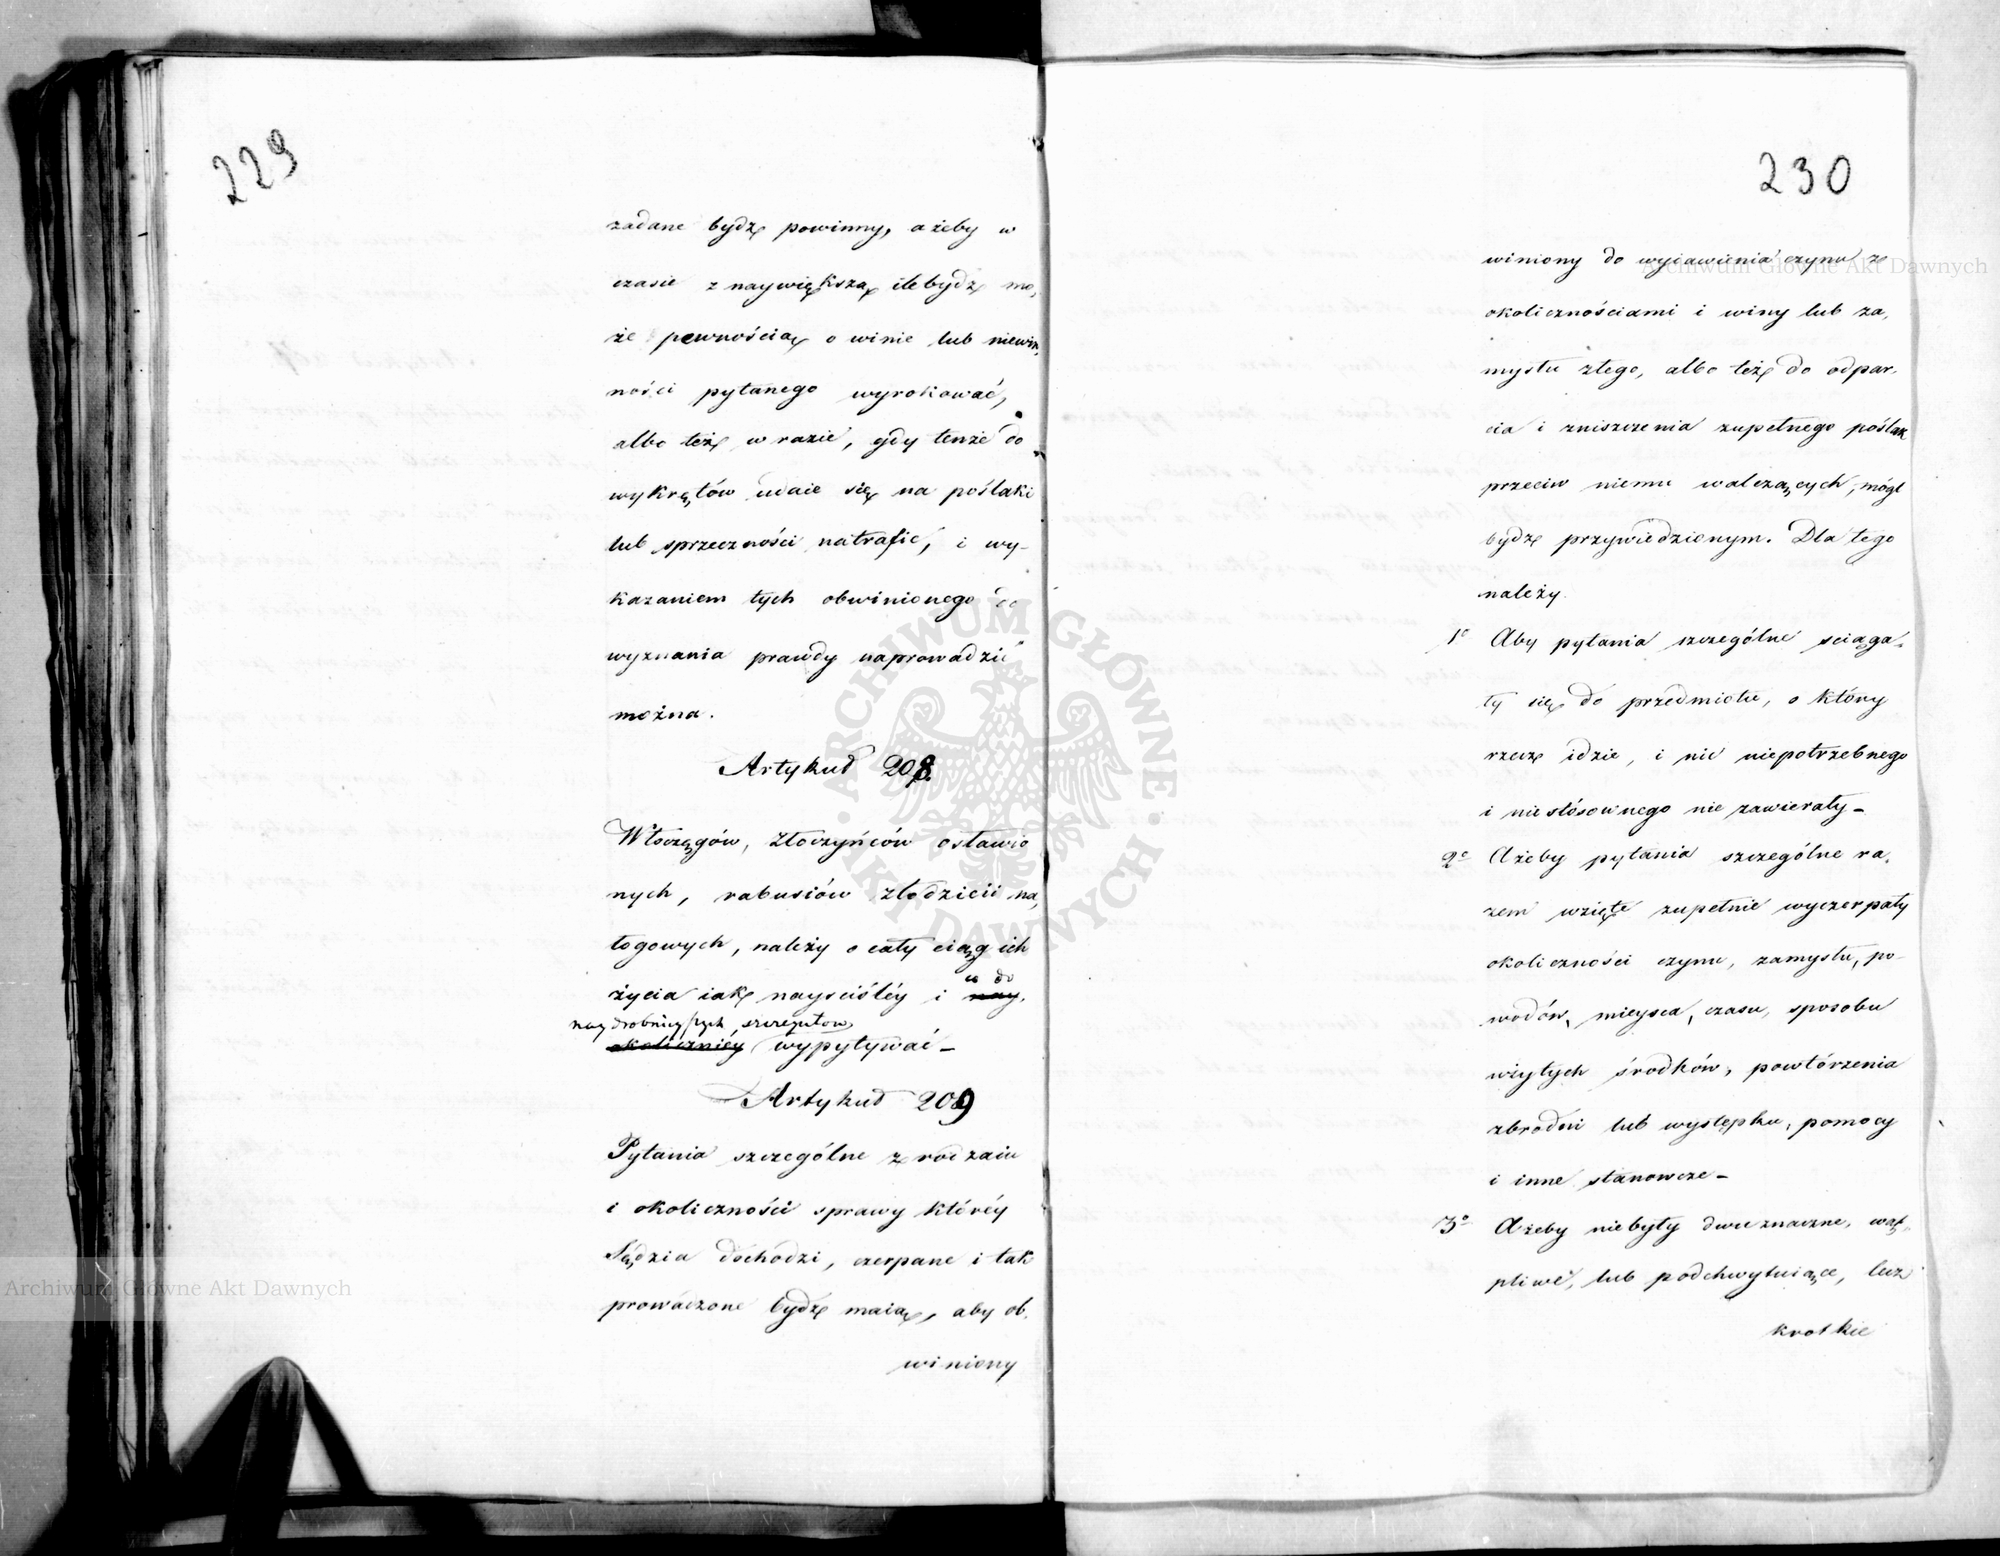 229
zadane bydź powinny, ażeby w
czasie z naywiększą ile bydź mo,
że pewnością o winie lub niewin,
ności pytanego wyrokować,
albo też w razie, gdy tenże do
wykrętów udaie się na poślaki
lub sprzeczności natrafić, i wy-
kazaniem tych obwinionego do
wyznania prawdy naprowadzić
można.
Artykuł 208.
Włoczęgów, złoczyńców osławio
nych, rabusiów złodzieii na,
łogowych, należy o cały ciąg ich
co do
życia iak nayściśléy i nay,
naydrobnieyszych szczegułow
okoliczniey wypytywać -
Artykuł 209
Pytania szczególne z rodzaiu
i okoliczności sprawy któréy
Sędzia dochodzi, czerpane i tak
prowadzone bydź maią, aby ob,
winiony
230
winiony do wyiawienia czynu ze
okolicznościami i winy lub za,
mysłu złego, albo też do odpar,
cia i zniszczenia zupełnego poślak
przeciw niemu walczących, mógł
bydź przywiedzionym. Dla tego
należy.
1o Aby pytania szczególne sciąga,
ły się do przedmiotu, o który
rzecz idzie, i nic niepotrzebnego
i niestósownego nie zawierały -
2o Ażeby pytania szczególne ra,
zem wzięte zupełnie wyczerpały
okoliczności czynu, zamysłu, po-
wodów, mieysca, czasu, sposobu
użytych środków, powtórzenia
zbrodni lub występku, pomocy
i inne stanowcze -
3o Ażeby niebyły dwuznaczne, wąt,
pliwe, lub podchwytuiące, lecz
krotkie
Archiwum Główne Akt Dawnych
ARCHIWUM GŁÓWNE
AKT DAWNYCH
Archiwum Główne Akt Dawnych